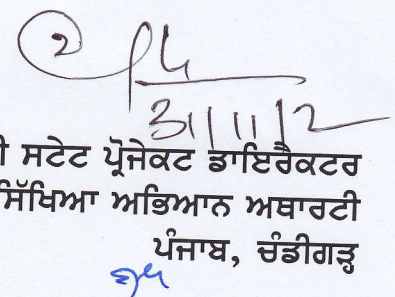 31/11/12
ੀ ਸਟੇਟ ਪ੍ਰੋਜੇਕਟ ਡਾਇਰੈਕਟਰ
ਸਿੱਖਿਆ ਅਭਿਆਨ ਅਥਾਰਟੀ
ਪੰਜਾਬ, ਚੰਡੀਗੜ੍ਹ